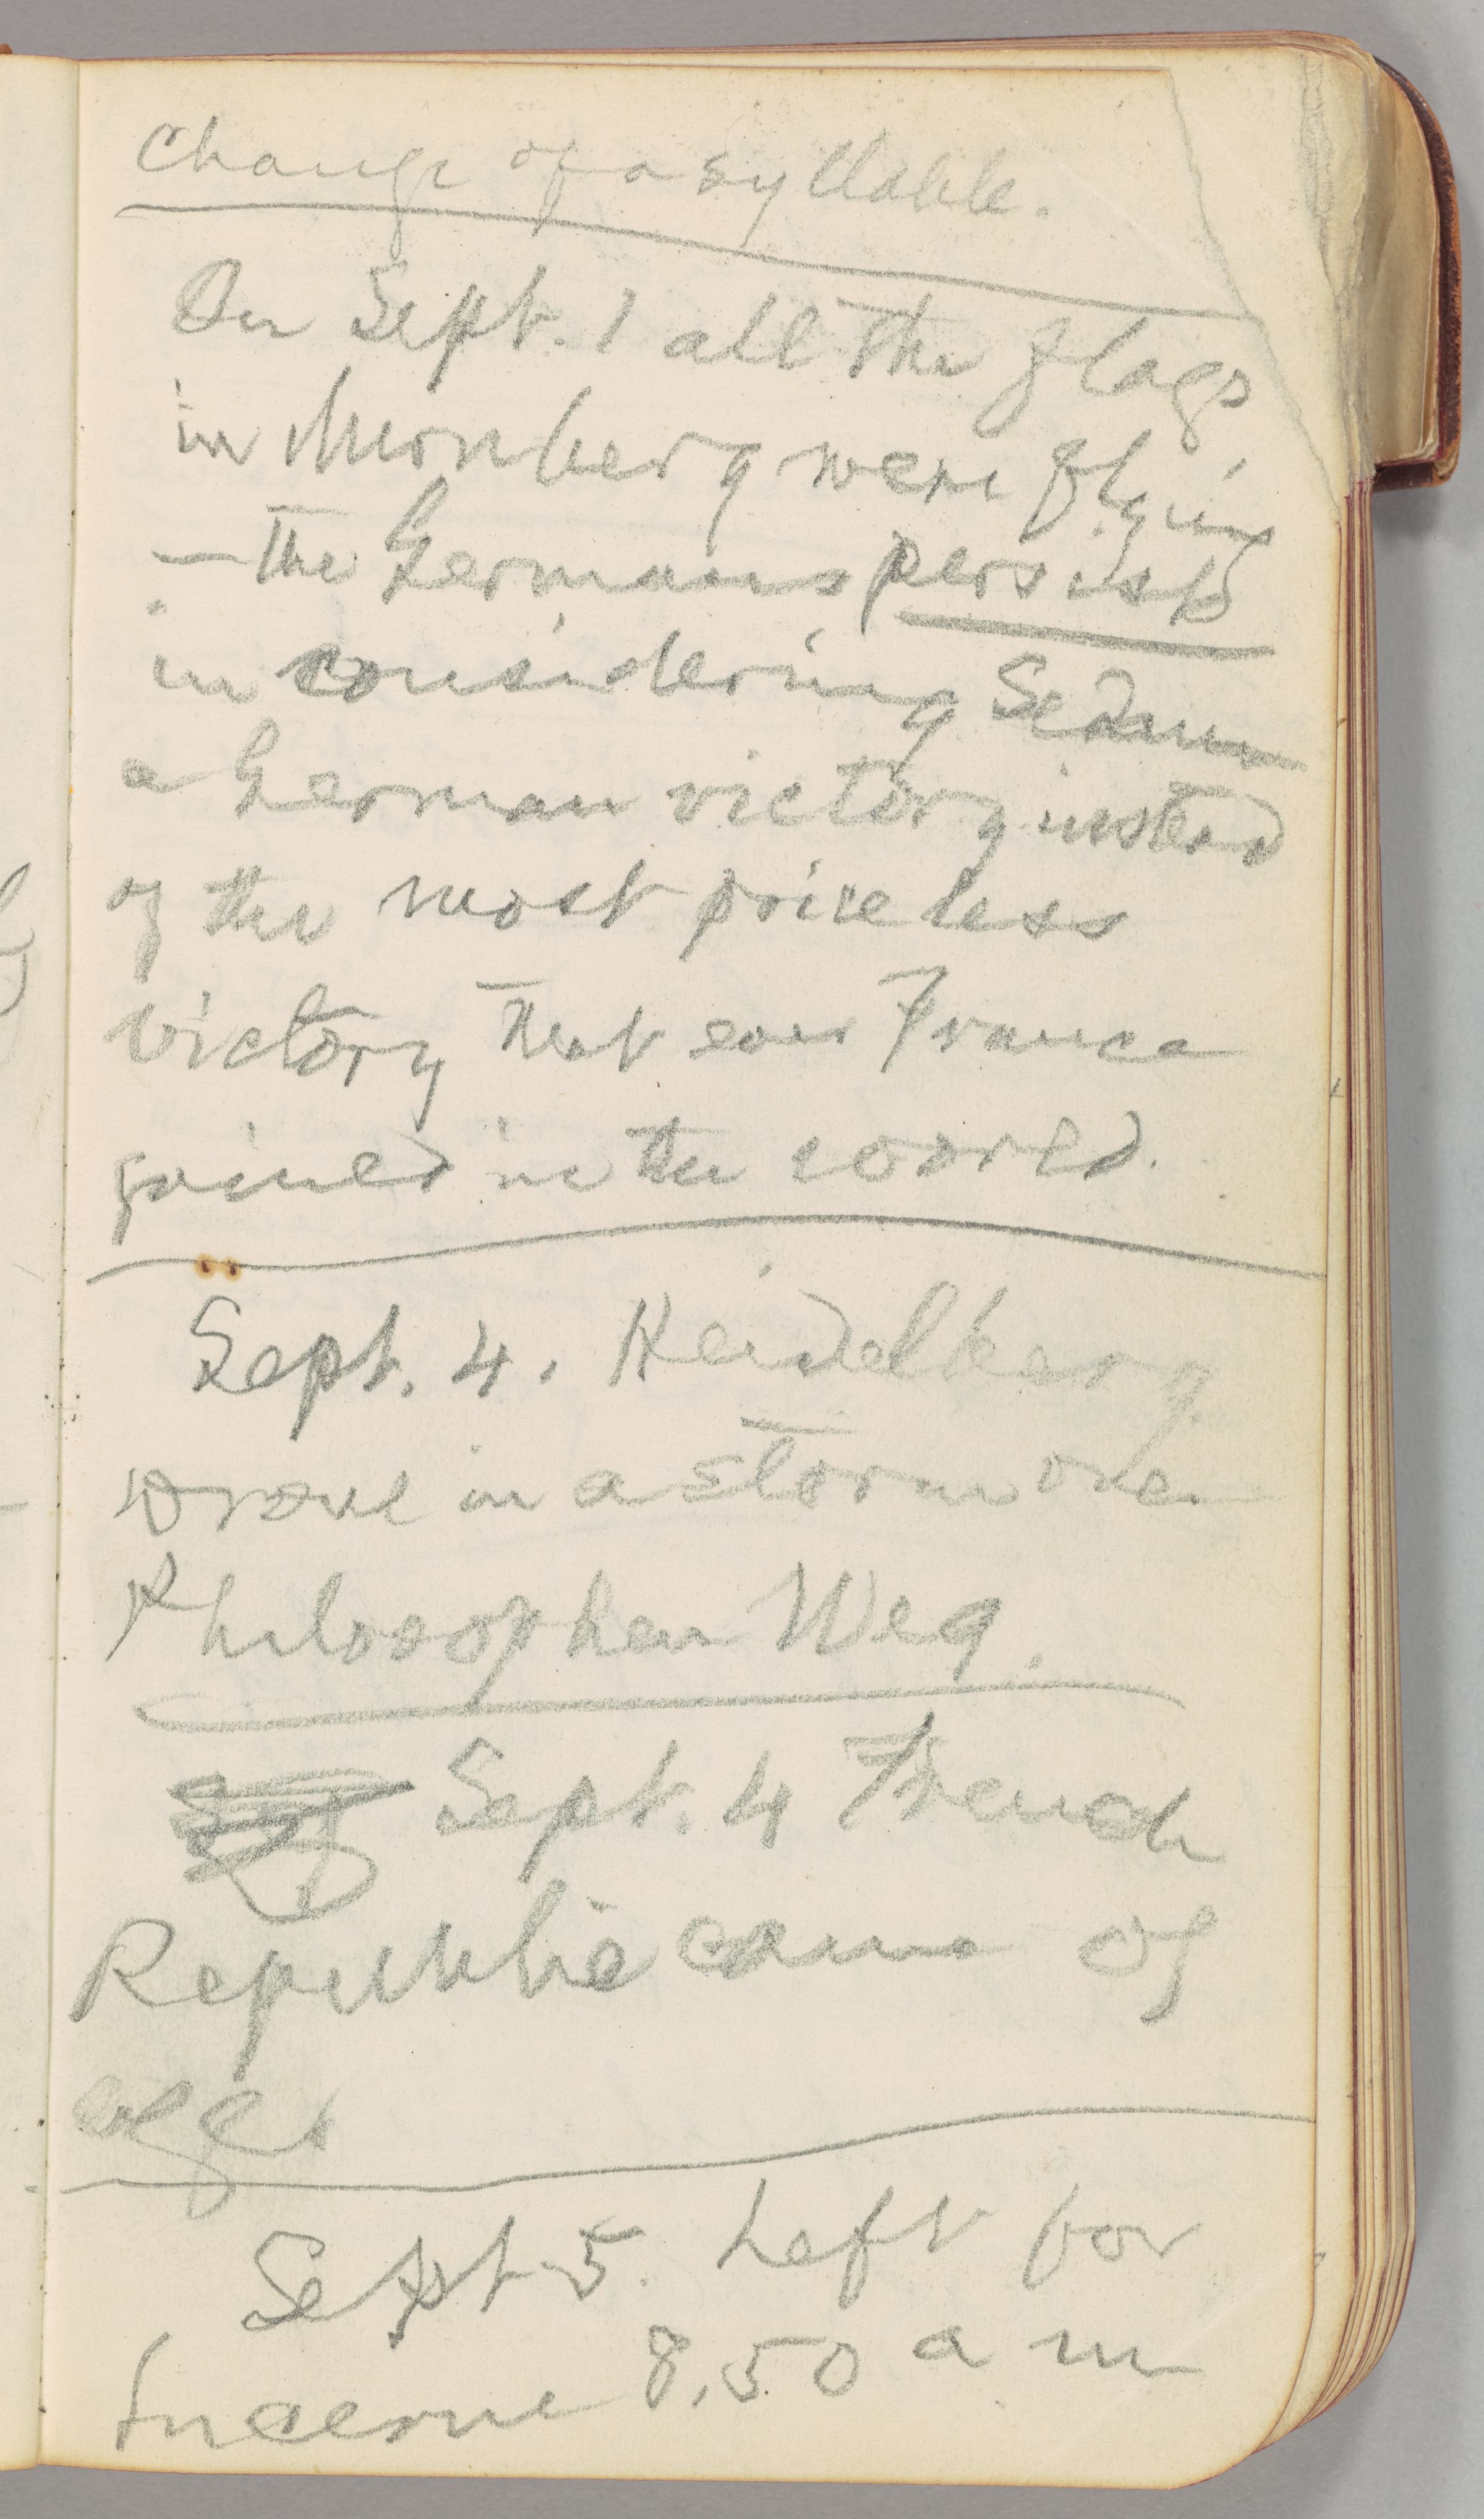 change of a syllable.
On Sept. 1 all the flags
in Nürnberg were flying
— the Germans persist
in considering Sedan
a German victory instead
of the most priceless
victory that ever France
gained in the world.
Sept. 4. Heidelberg.
Drove in a storm over
Philosophen Weg.
Sept. 4 French
Republic came of
age
Sept 5. Left for
Lucerne 8.50 a m